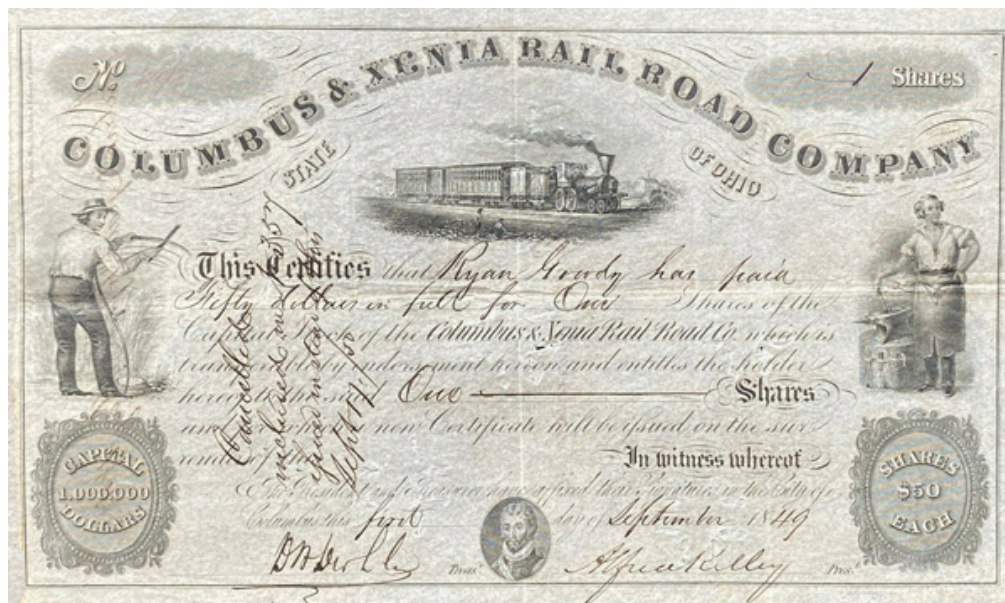 No
1 Shares
COLUMBUS & XENIA RAIL ROAD COMPANY
STATE OF OHIO
This Certifies that Ryan Gowdy has paid
Fifty dollars in full for One Shares of the
Capital Stock of the Columbus & Xenia Rail Road Co. which is
transferable by endorsement hereon and entitles the holder
hereof to One Shares
new Certificate will be issued on the sur
render of
In witness whereof
The President and Treasurer have affixed their Signatures in the City of
Columbus this first day of September 1849
Treasr.
Alfred Kelley Prest.
Cancelled
included in 357
issued in stead
Sept 17/50
CAPITAL
1.000.000
DOLLARS
SHARES
$50
EACH